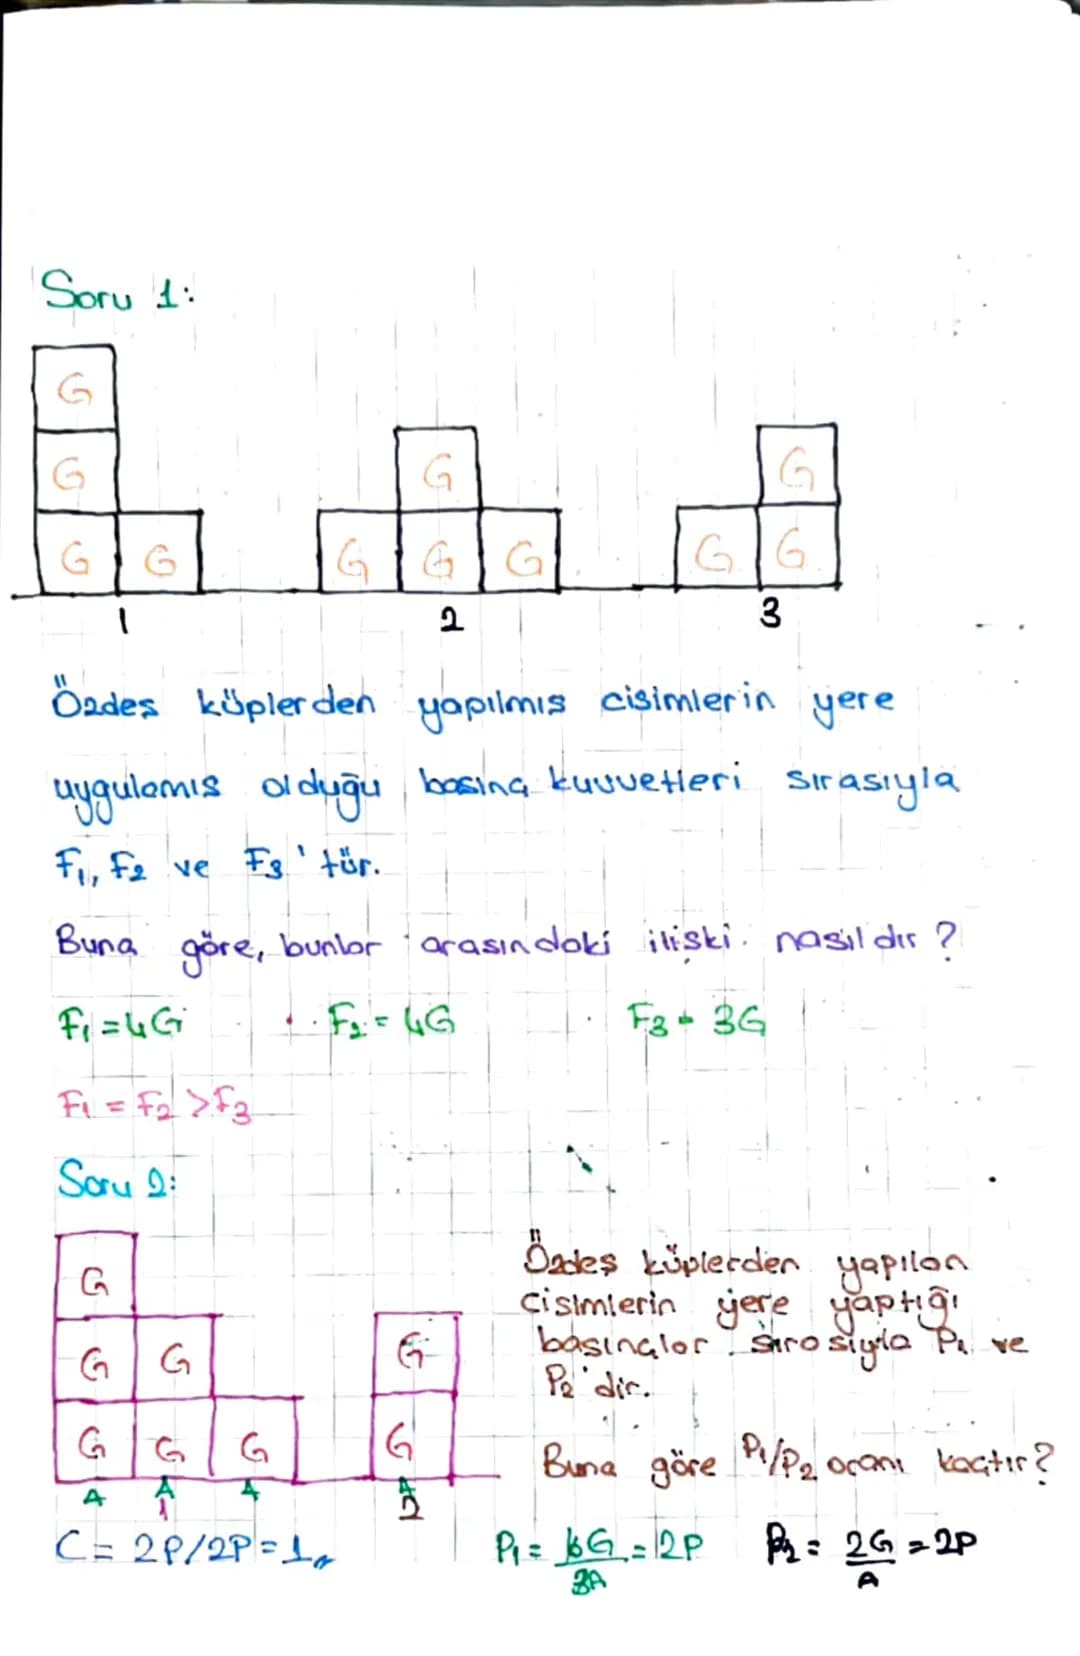 Soru 1:
G
G
G
G G
G G G
G G
1
2
3
Özdes küplerden yapılmıs cisimlerin yere
uygulamıs olduğu basınç kuvvetleri sırasıyla
F1, F2 ve F3'tür.
Buna göre, bunlar arasındaki ilişki nasıldır?
F1 = 4G F2 = 4G F3 = 3G
F1 = F2 > F3
Soru 2:
G
G G
G G G
A A A
1
G
G
A
2
Özdeş küplerden yapılan
cisimlerin yere yaptığı
basınçlar sırasıyla P1 ve
P2'dir.
Buna göre P1/P2 oranı kaçtır?
C = 2P/2P = 1
P1 = 6G/3A = 2P P2 = 2G/A = 2P